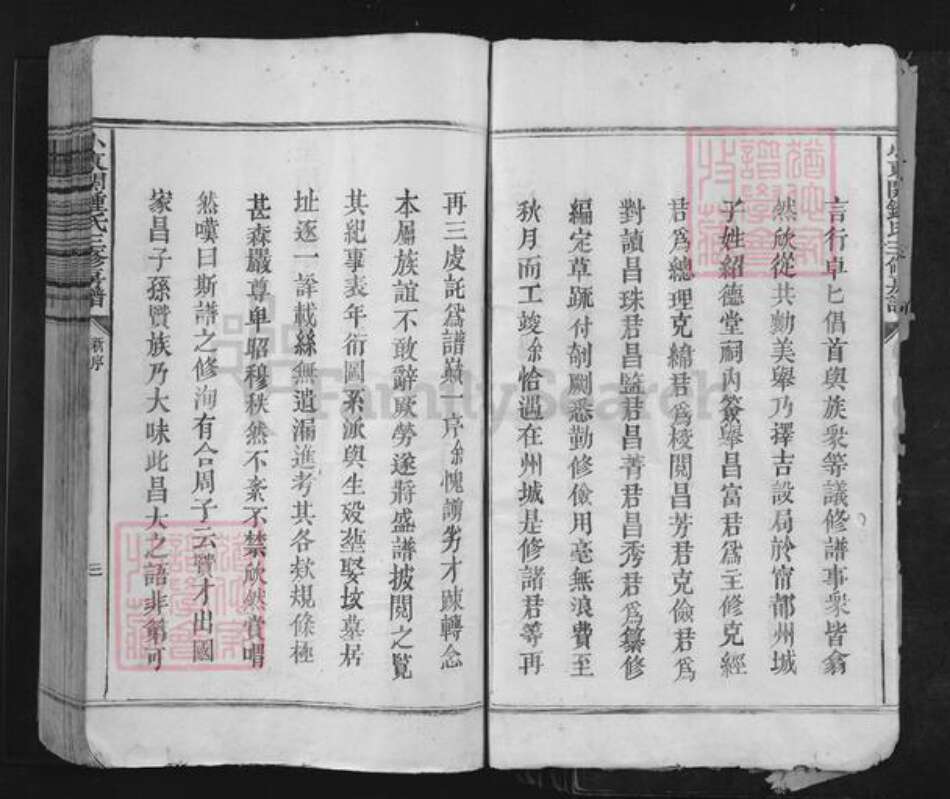 言行卓匕倡首與族衆等議修譜事衆皆翕
然欣從共勷美舉乃擇吉設局於甯都州城
子姓紹德堂祠內簽舉昌富君爲主修克經
君爲總理克綿君爲校閱昌芳君克儉君爲
對讀昌珠君昌監君昌菁君昌秀君爲纂修
編定草䟽付剞劂悉勤修儉用毫無浪費至
秋月而工竣余恰遇在州城是修諸君等再
再三虔託爲譜嶽一序余愧謭劣才踈轉念
本屬族誼不敢辭厥勞遂將盛譜披閲之覧
其紀事表年衍圖系派與生殁塟娶坟墓居
址逐一詳載絲無遺漏進考其各欵規條極
甚森嚴尊卑昭穆秩然不紊不禁欣然賞喟
然嘆曰斯譜之修洵有合周子云賢才出國
家昌子孫賢族乃大味此昌大之語非第可
鍾氏三修族譜
新序
三
FamilySearch